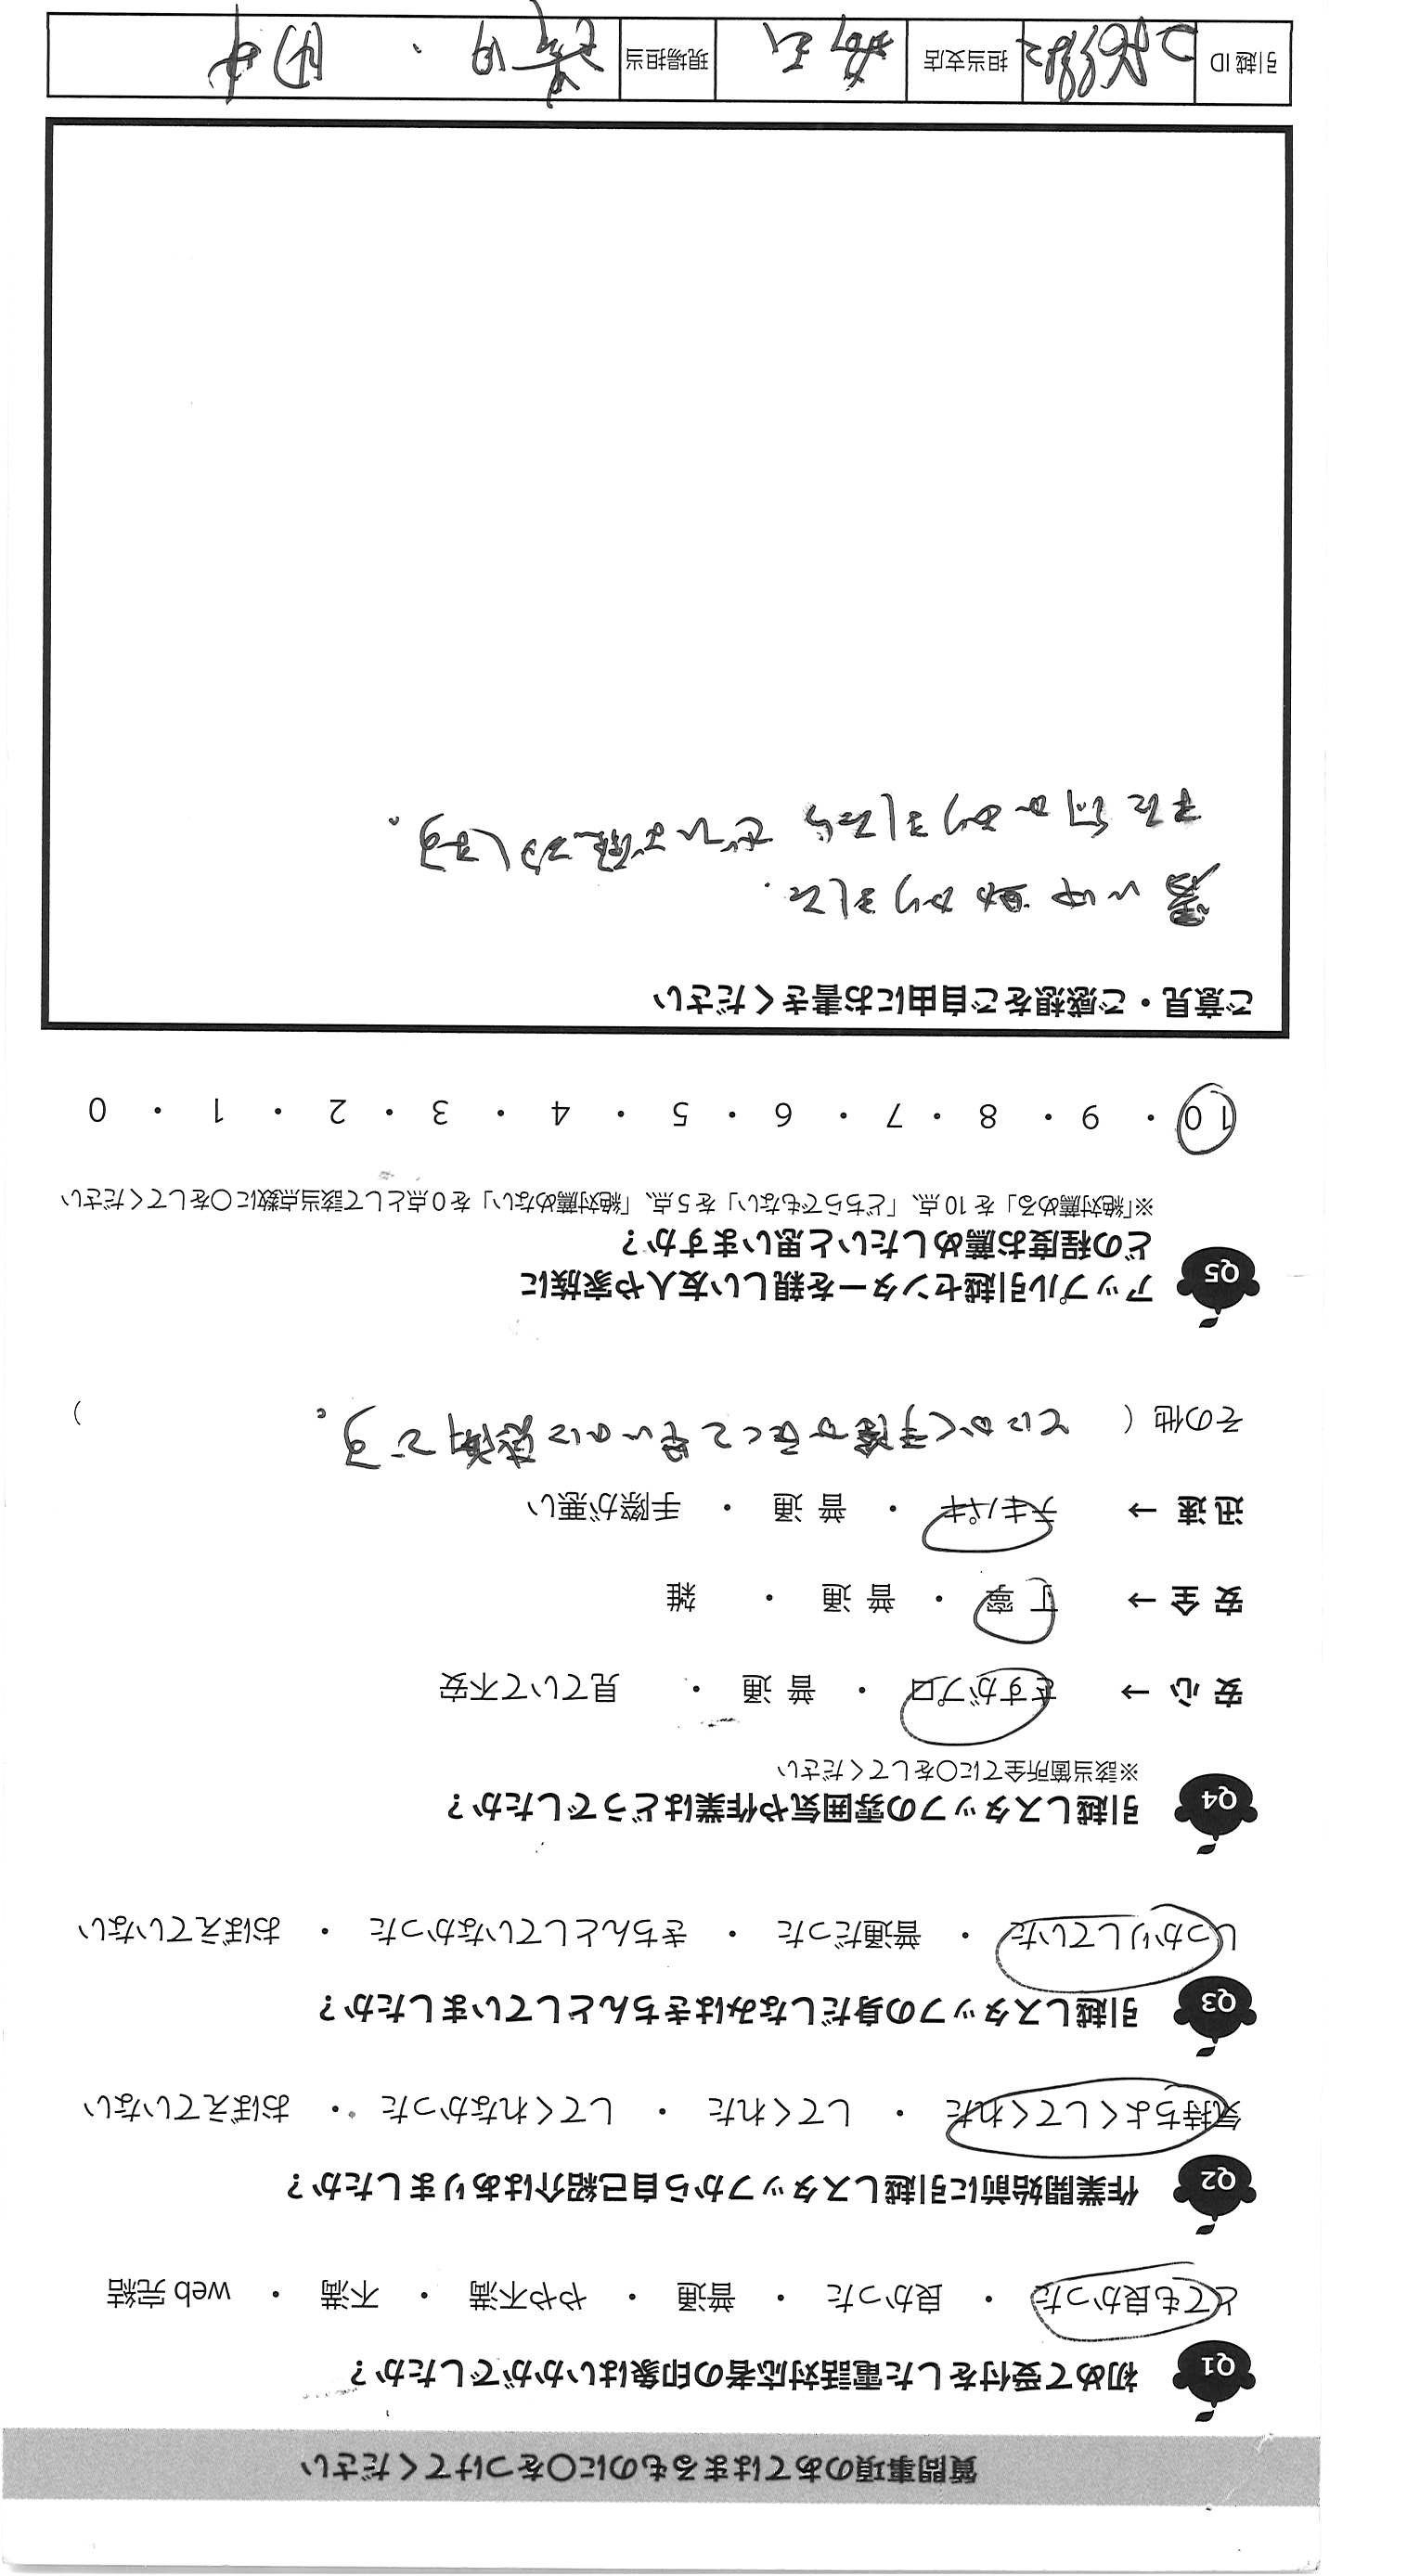 質問事項のあてはまるものに〇をつけてください
Q1 初めて受付をした電話対応者の印象はいかがでしたか？
とても良かった ・ 良かった ・ 普通 ・ やや不満 ・ 不満 ・ web 完結
Q2 作業開始前に引越しスタッフから自己紹介はありましたか？
気持ちよくしてくれた ・ してくれた ・ してくれなかった ・ おぼえていない
Q3 引越しスタッフの身だしなみはきちんとしていましたか？
しっかりしていた ・ 普通だった ・ きちんとしていなかった ・ おぼえていない
Q4 引越しスタッフの雰囲気や作業はどうでしたか？
※該当箇所全てに〇をしてください
安 心 → さすがプロ ・ 普 通 ・ 見ていて不安
安 全 → 丁 寧 ・ 普 通 ・ 雑
迅 速 → テキパキ ・ 普 通 ・ 手際が悪い
その他 ( とにかく手際がよくて早いのに感謝です。 )
Q5 アップル引越センターを親しい友人や家族に
どの程度お薦めしたいと思いますか？
※「絶対薦める」を 10 点、「どちらでもない」を 5 点、「絶対薦めない」を 0 点として該当点数に〇をしてください
10 ・ 9 ・ 8 ・ 7 ・ 6 ・ 5 ・ 4 ・ 3 ・ 2 ・ 1 ・ 0
ご意見・ご感想をご自由にお書きください
暑い中助かりました.
また何かありましたらぜひお願いします。
引越 ID 担当支店 現場担当 田中